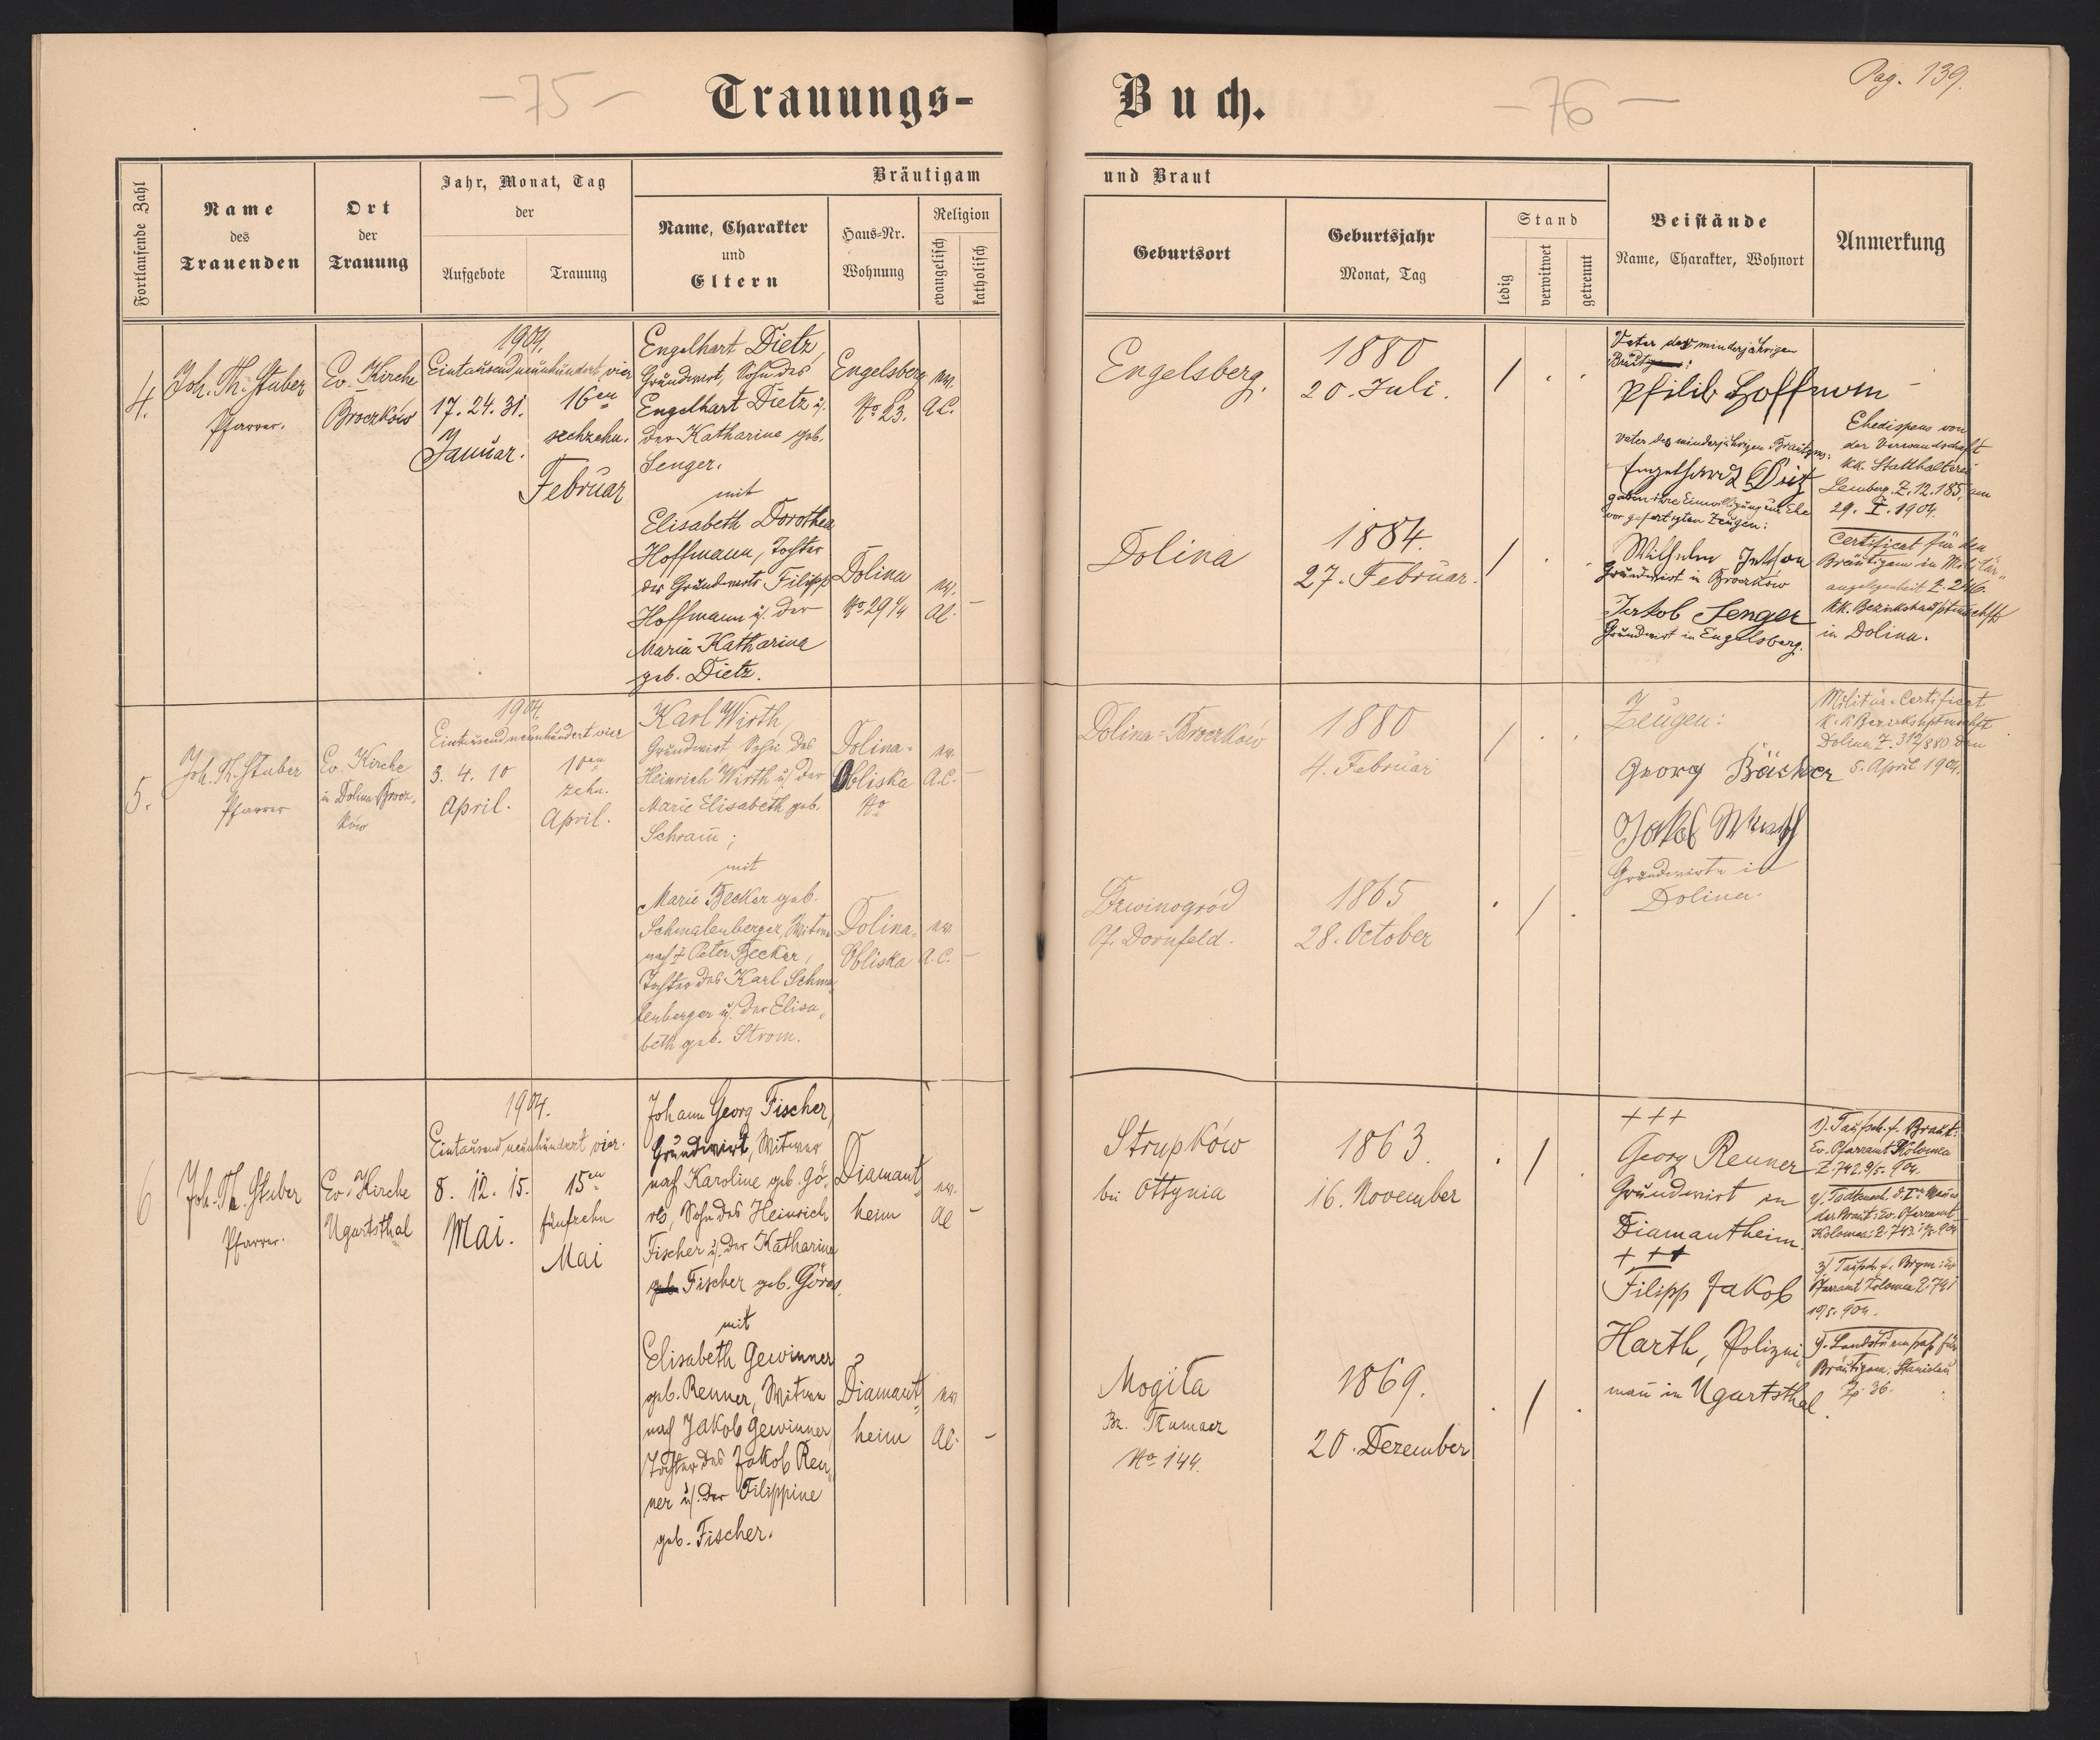 Pag. 139.
– 75 –
Trauungs-
Buch.
– 76 –
Fortlaufende Zahl
Name
des
Trauenden
Ort
der
Trauung
Jahr, Monat, Tag
der
Aufgebote
Trauung
Bräutigam
Name, Charakter
und
Eltern
Haus-Nr.
Wohnung
Religion
evangelisch
katholisch
und Braut
Geburtsort
Geburtsjahr
Monat, Tag
Stand
ledig
verwitwet
getrennt
Beistände
Name, Charakter, Wohnort
Anmerkung
4.
Joh. Th. Stuber
Pfarrer.
Ev. Kirche
Broczków
1904.
Eintausendneunhundert vier
17. 24. 31.
Januar.
16en
sechzehn.
Februar
Engelhart Dietz,
Grundwirt, Sohn des
Engelhart Dietz u.
der Katharine geb.
Senger.
mit
Elisabeth Dorothea
Hoffmann, Tochter
des Grundwirts Filipp
Hoffmann u. der
Maria Katharina
geb. Dietz.
Engelsberg
No 23.
ev.
A.C.
Dolina
No 29 1/4
ev.
AC. –
Engelsberg.
1880
20. Juli.
/ . .
Dolina
1884.
27. Februar.
/ . .
Vater der minderjährigen
Philib Hoffmom
Vater des minderjährigen Bräutgms:
Engelhard Ditz
gaben ihre Einwilligung zur Ehe
vor gefertigten Zeugen:
Wilhelm
Grundwirt in Broczków
Jakob Senger
Grundwirt in Engelsberg.
Ehedispens von
der Verwandschaft
kk. Statthalterei
Lemberg Z. 12.185, am
29. I. 1904.
Certificat für den
Bräutigam in Militär-
angelegenheit Z. 246.
kk. Bezirkshauptmschft
in Dolina.
5.
Joh. Th. Stuber
Pfarrer
Ev. Kirche
in Dolina Brocz-
ków
1904.
Eintausendneunhundert vier
3. 4. 10
April.
10en
zehn.
April.
Karl Wirth,
Grundwirt, Sohn des
Heinrich Wirth u. der
Marie Elisabeth geb.
Schram̄;
mit
Marie Becker geb.
Schmalenberger, Witwe
nach † Peter Becker,
Tochter des Karl Schma-
lenberger u. der Elisa-
beth geb. Strom.
Dolina-
Obliska
No
ev.
A.C. –
Dolina-
Obliska
ev.
A.C. –
Dolina-Broczków
1880
4. Februar
/ . .
Dzwinogród
Pf. Dornfeld.
1865
28. October
. / .
Zeugen:
Georg Bäcker
Jakob Wirth
Grundwirte in
Dolina.
Militär-Certificat
k.k Bezirkshptmschft.
Dolina Z. 312/880 den
5. April 1904.
6
Joh. Th. Stuber
Pfarrer.
Ev. Kirche
Ugartsthal
1904.
Eintausendneunhundert vier.
8. 12. 15.
Mai.
15en
fünfzehn
Mai
Johann Georg Fischer,
Grundwirt, Witwer
nach Karoline geb. Gö-
res, Sohn des Heinrich
Fischer u. der Katharina
Fischer geb. Göres.
mit
Elisabeth Gewinner
geb. Renner, Witwe
nach Jakob Gewinner,
Tochter des Jakob Ren-
ner u. der Filippine
geb. Fischer.
Diamant-
heim
ev.
AC –
Diamant-
heim
ev
AC. –
Strupków
bei Ottynia
1863.
16. November
. / .
Mogiła
Bz. Tłumacz
No 144.
1869.
20. Dezember
. / .
+++
Georg Renner
Grundwirt in
Diamantheim.
+++
Filipp Jakob
Harth, Polizei-
man̄ in Ugartsthal.
1). Taufsch. f. Braut:
Ev. Pfarramt Kolomea
Z. 742. 9/5. 904.
2). Todtensch. d. I. Mannes
der Braut: Ev. Pfarramt
Kolomea: Z. 743.
3) Taufsch f. Brgm: Ev
Pfarramt Kolomea Z. 741
10/5. 904.
4). Landsturmpass für
Bräutigam: Stanislau
Zp 36.